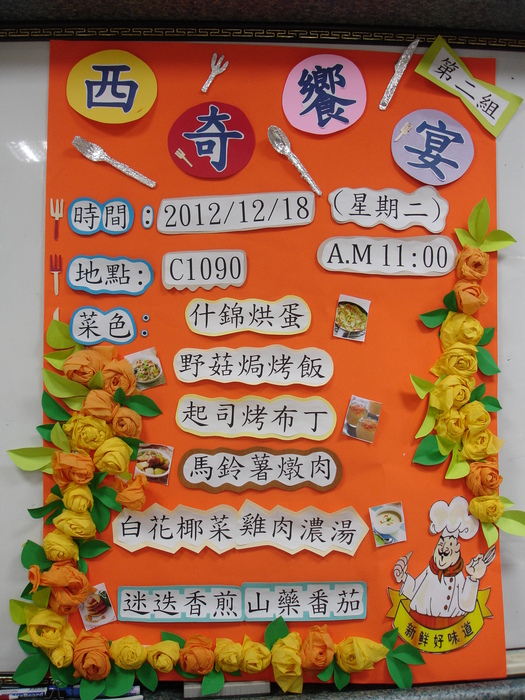 西奇饗宴
第二組
時間：2012/12/18 （星期二）
地點：C1090 A.M 11:00
菜色：什錦烘蛋
野菇焗烤飯
起司烤布丁
馬鈴薯燉肉
白花椰菜雞肉濃湯
迷迭香煎山藥番茄
新鮮好味道